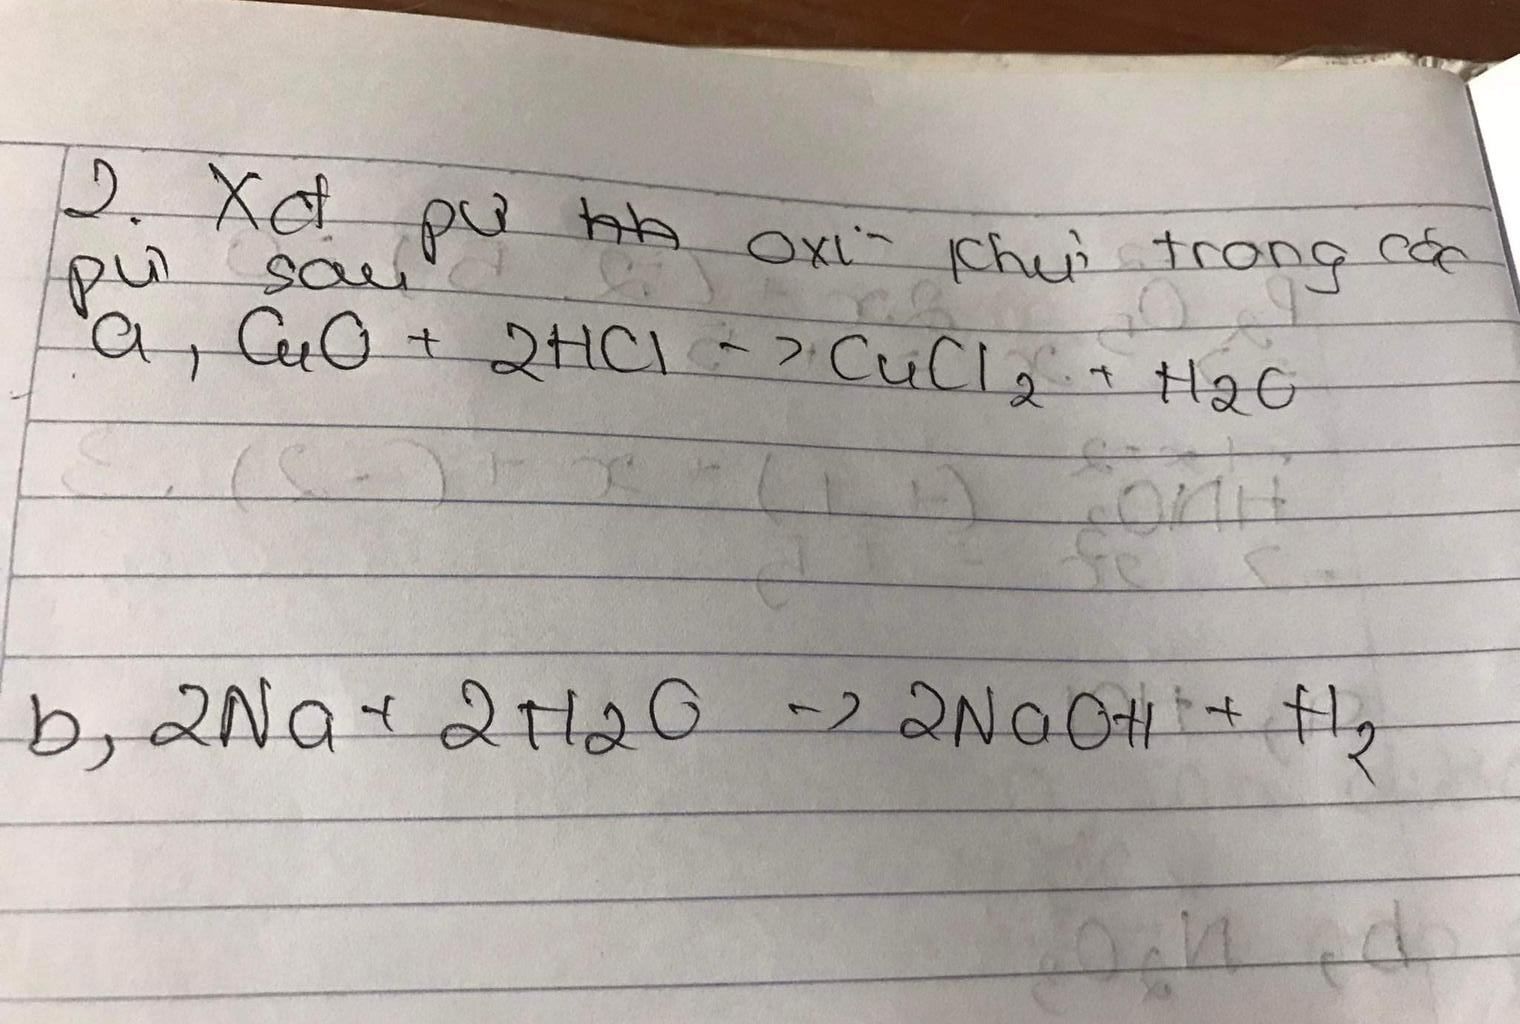 2. Xđ pứ oxi- khử trong các
pứ sau
a, CuO + 2HCl -> CuCl2 + H2O
b, 2Na + 2H2O -> 2NaOH + H2